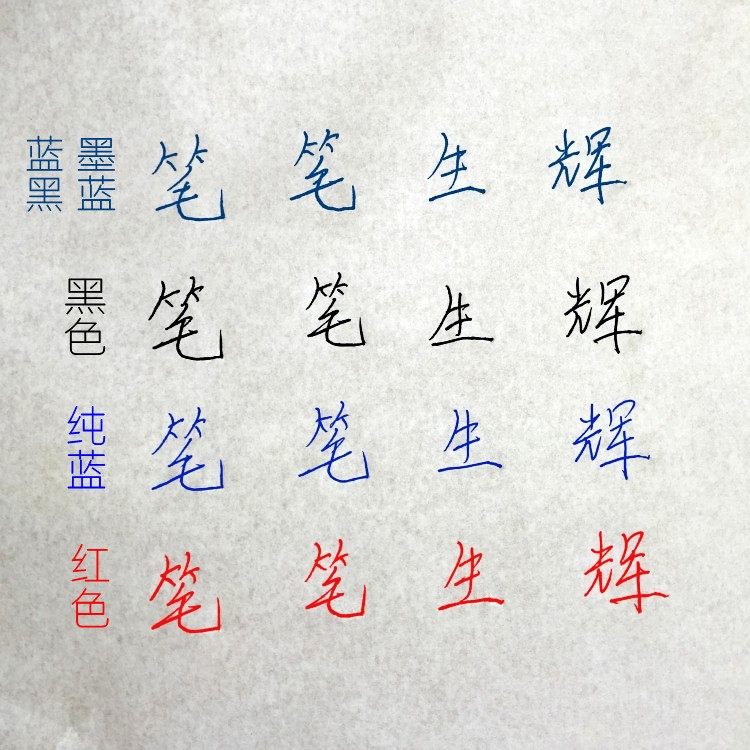 蓝黑 墨蓝 笔 笔 生 辉
黑色 笔 笔 生 辉
纯蓝 笔 笔 生 辉
红色 笔 笔 生 辉